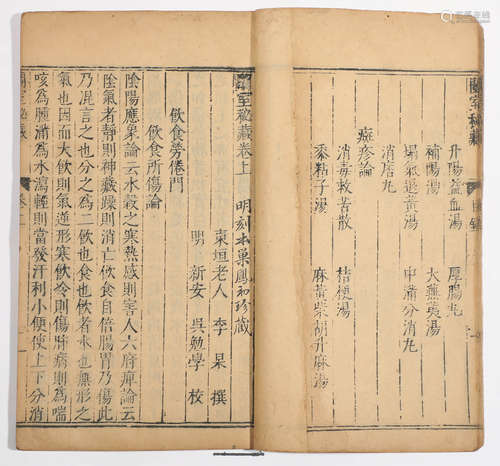 蘭室秘藏 目錄
升陽益血湯 厚腸丸
補陽湯 大蕪荑湯
塌氣退黃湯 中滿分消丸
消痞丸
癍疹論
消毒救苦散 桔梗湯
黍粘子湯 麻黃柴胡升麻湯
蘭室秘藏卷上 明刻本巢鳳初珍藏
東垣老人 李杲 撰
明 新安 吳勉學 校
飲食勞倦門
飲食所傷論
陰陽應象論云水穀之寒熱感則害人六府痺論云
陰氣者靜則神藏躁則消亡飲食自倍腸胃乃傷此
乃混言之也分之為二飲也食也飲者水也無形之
氣也因而大飲則氣逆形寒飲冷則傷肺病則為喘
咳為腫滿為水瀉輕則當發汗利小便使上下分消
蘭室秘藏